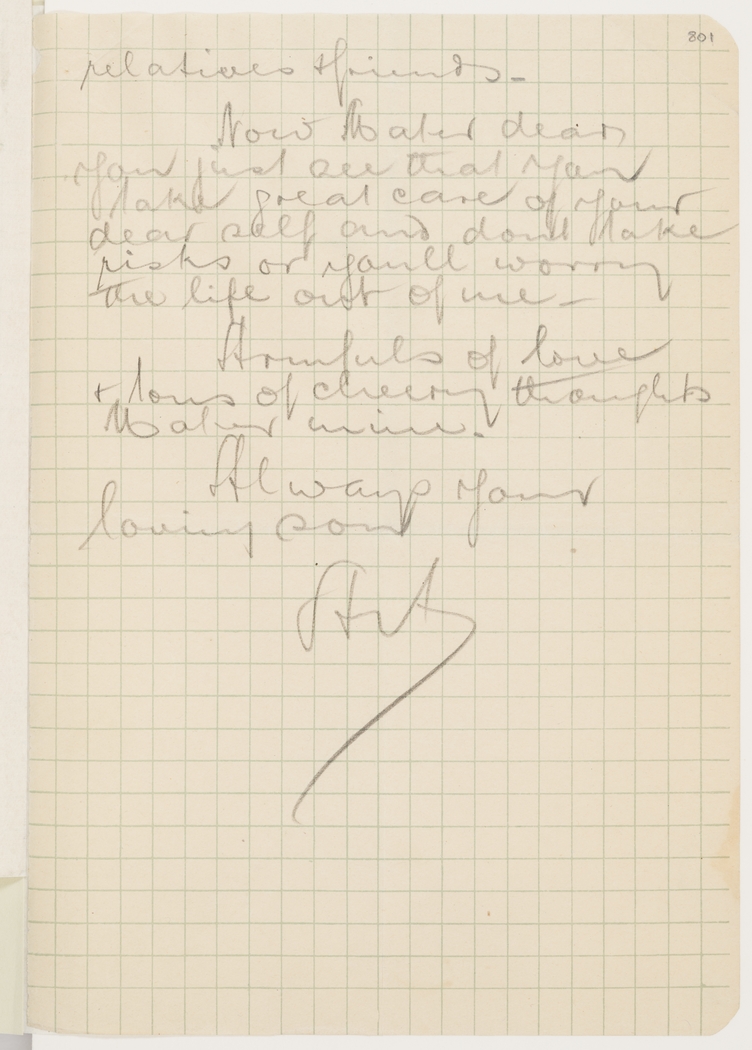 801
relatives & friends -
Now Mater dear
you just see that you
take great care of your
dear self and don't take
risks or you'll worry
the life out of me -
Armfuls of love
& tons of cheery thoughts
Mater mine.
Always your
loving son
Art